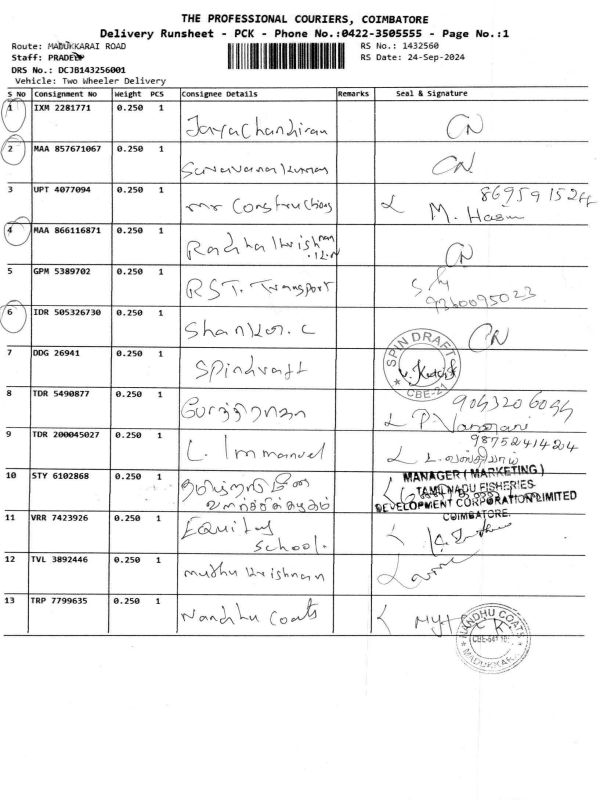 THE PROFESSIONAL COURIERS, COIMBATORE
Delivery Runsheet - PCK - Phone No.:0422-3505555 - Page No.:1
Route: MADUKKARAI ROAD
RS No.: 1432560
Staff: PRADEEP
RS Date: 24-Sep-2024
DRS No.: DCJB143256001
Vehicle: Two Wheeler Delivery
S No Consignment No Weight PCS Consignee Details Remarks Seal & Signature
1 IXM 2281771 0.250 1 Jaya Chandiran CN
2 MAA 857671067 0.250 1 Saravanakumar CN
3 UPT 4077094 0.250 1 mr Constructions M. Hasim
4 MAA 866116871 0.250 1 Radha krishnan CN
5 GPM 5389702 0.250 1 RST. Transport 9360095023
6 IDR 505326730 0.250 1 Shankar. C CN
7 DDG 26941 0.250 1 Spindraft SPIN DRAFT CBE-21
8 TDR 5490877 0.250 1
9 TDR 200045027 0.250 1 L. Immanuel 9875241424
10 STY 6102868 0.250 1 தமிழ்நாடு மீன் வளர்ச்சிக்கழகம்
MANAGER (MARKETING)
TAMIL NADU FISHERIES
DEVELOPMENT CORPORATION LIMITED
COIMBATORE.
11 VRR 7423926 0.250 1 Equitas School.
12 TVL 3892446 0.250 1 muthu krishnan
13 TRP 7799635 0.250 1 Nandhu Coats
NANDHU COATS MADUKKARAI